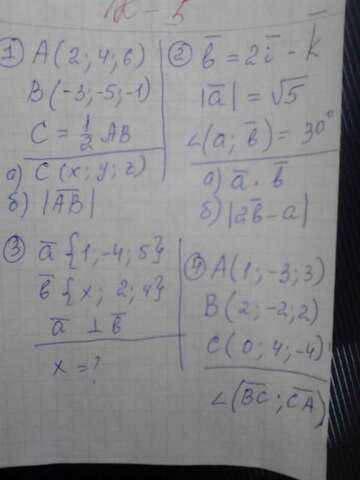 К - 5
① A(2; 4; 6)
B(-3; -5; -1)
C = 1/2 AB
а) C(x; y; z)
б) |A̅B̅|
② b̅ = 2i̅ - k̅
|a̅| = √5
∠(a; b̅) = 30°
а) a̅ · b̅
б) |2b̅ - a|
③ a̅ {1; -4; 5}
b̅ {x; 2; 4}
a̅ ⊥ b̅
x = ?
④ A(1; -3; 3)
B(2; -2; 2)
C(0; 4; -4)
∠(B̅C̅; C̅A̅)